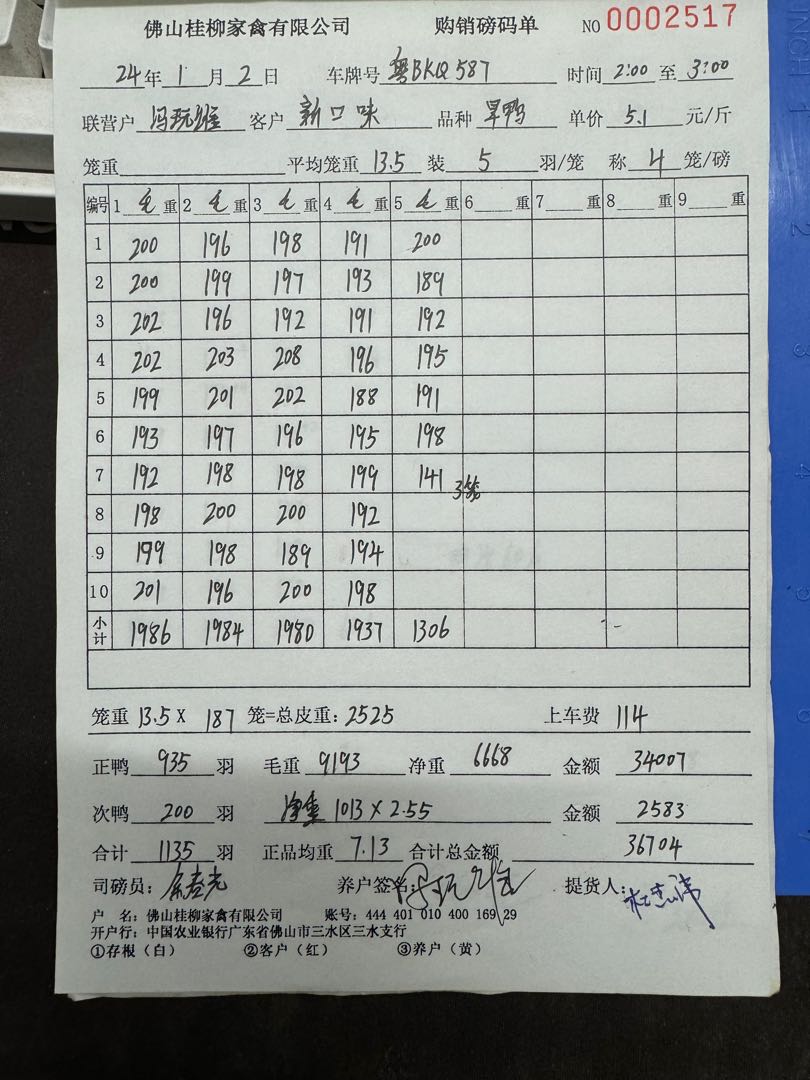 佛山桂柳家禽有限公司 购销磅码单 NO 0002517
24年1月2日 车牌号 粤BKQ587 时间 2:00至3:00
联营户 冯玩维 客户 新口味 品种 旱鸭 单价 5.1 元/斤
笼重 平均笼重 13.5 装 5 羽/笼 称 4 笼/磅
编号 1 毛 重 2 毛 重 3 毛 重 4 毛 重 5 毛 重 6 重 7 重 8 重 9 重
1 200 196 198 191 200
2 200 199 197 193 189
3 202 196 192 191 192
4 202 203 208 196 195
5 199 201 202 188 191
6 193 197 196 195 198
7 192 198 198 199 141 3笼
8 198 200 200 192
9 199 198 189 194
10 201 196 200 198
小计 1986 1984 1980 1937 1306
笼重 13.5 X 187 笼=总皮重: 2525 上车费 114
正鸭 935 羽 毛重 9193 净重 6668 金额 34007
次鸭 200 羽 净重 1013 X 2.55 金额 2583
合计 1135 羽 正品均重 7.13 合计总金额 36704
司磅员: 养户签名: 提货人:
户 名: 佛山桂柳家禽有限公司 账号: 444 401 010 400 169 29
开户行: 中国农业银行广东省佛山市三水区三水支行
①存根(白) ②客户(红) ③养户(黄)